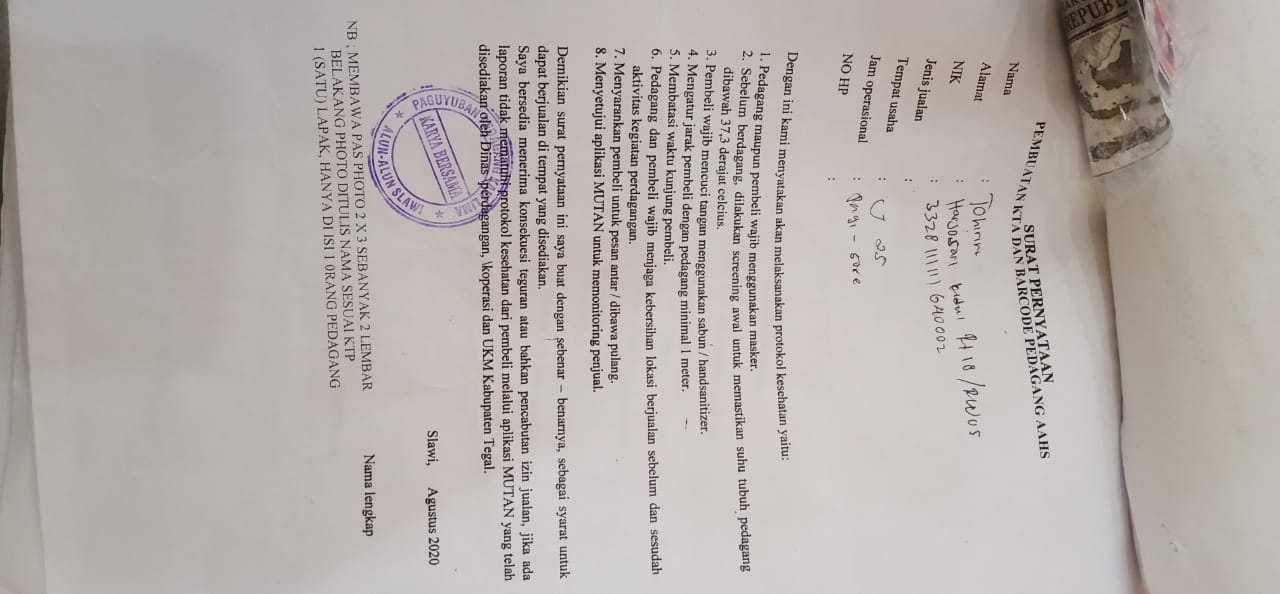 REPUB
SURAT PERNYATAAN
PEMBUATAN KTA DAN BARCODE PEDAGANG AAHS
Nama : Tohirin
Alamat : Harjosari kidul Rt 10 /RW05
NIK : 3328111111640002
Jenis jualan :
Tempat usaha : U 25
Jam operasional : Pagi - sore
NO HP :
Dengan ini kami menyatakan akan melaksanakan protokol kesehatan yaitu:
1. Pedagang maupun pembeli wajib menggunakan masker.
2. Sebelum berdagang, dilakukan screening awal untuk memastikan suhu tubuh pedagang
dibawah 37,3 derajat celcius.
3. Pembeli wajib mencuci tangan menggunakan sabun / handsanitizer.
4. Mengatur jarak pembeli dengan pedagang minimal 1 meter.
5. Membatasi waktu kunjung pembeli.
6. Pedagang dan pembeli wajib menjaga kebersihan lokasi berjualan sebelum dan sesudah
aktivitas kegiatan perdagangan.
7. Menyarankan pembeli untuk pesan antar / dibawa pulang.
8. Menyetujui aplikasi MUTAN untuk memonitoring penjual.
Demikian surat pernyataan ini saya buat dengan sebenar – benarnya, sebagai syarat untuk
dapat berjualan di tempat yang disediakan.
Saya bersedia menerima konsekuesi teguran atau bahkan pencabutan izin jualan, jika ada
laporan tidak mematuhi protokol kesehatan dari pembeli melalui aplikasi MUTAN yang telah
disediakan oleh Dinas \perdagangan, \koperasi dan UKM Kabupaten Tegal.
PAGUYUBAN PEDAGANG KAKI LIMA
KARYA BERSAMA
ALUN-ALUN SLAWI
Slawi, Agustus 2020
Nama lengkap
NB ; MEMBAWA PAS PHOTO 2 X 3 SEBANYAK 2 LEMBAR
BELAKANG PHOTO DITULIS NAMA SESUAI KTP
1 (SATU) LAPAK, HANYA DI ISI 1 0RANG PEDAGANG